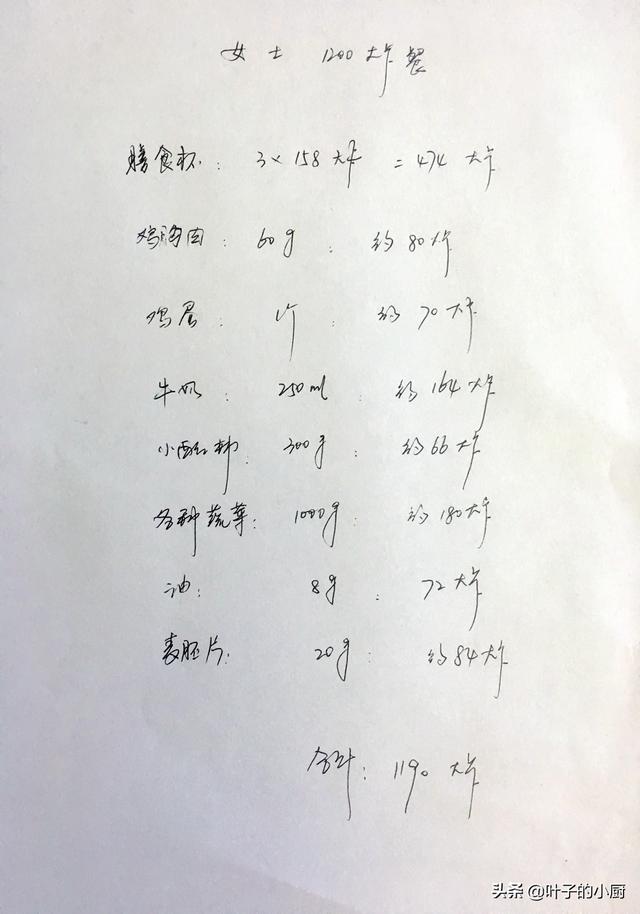 女士 1200大卡餐
膳食杯: 3×158大卡 =474大卡
鸡胸肉: 60g: 约80大卡
鸡蛋: 1个: 约70大卡
牛奶: 250ml: 约164大卡
小西红柿: 300g: 约66大卡
各种蔬菜: 1000g: 约180大卡
油: 8g: 72大卡
麦胚片: 20g: 约84大卡
合计: 1190大卡
头条 @叶子的小厨